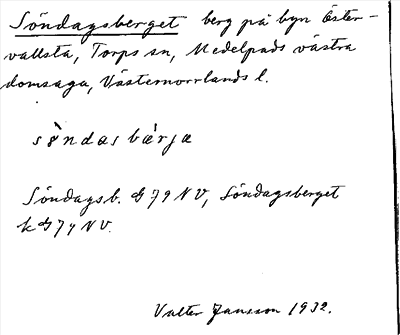 Söndagsberget berg på byn Öster-
vallsta, Torps sn, Medelpads västra
domsaga, Västernorrlands l.
sö̀ndasbärja
Söndagsb. G79NV, Söndagsberget
k G74NV.
Valter Jansson 1932.